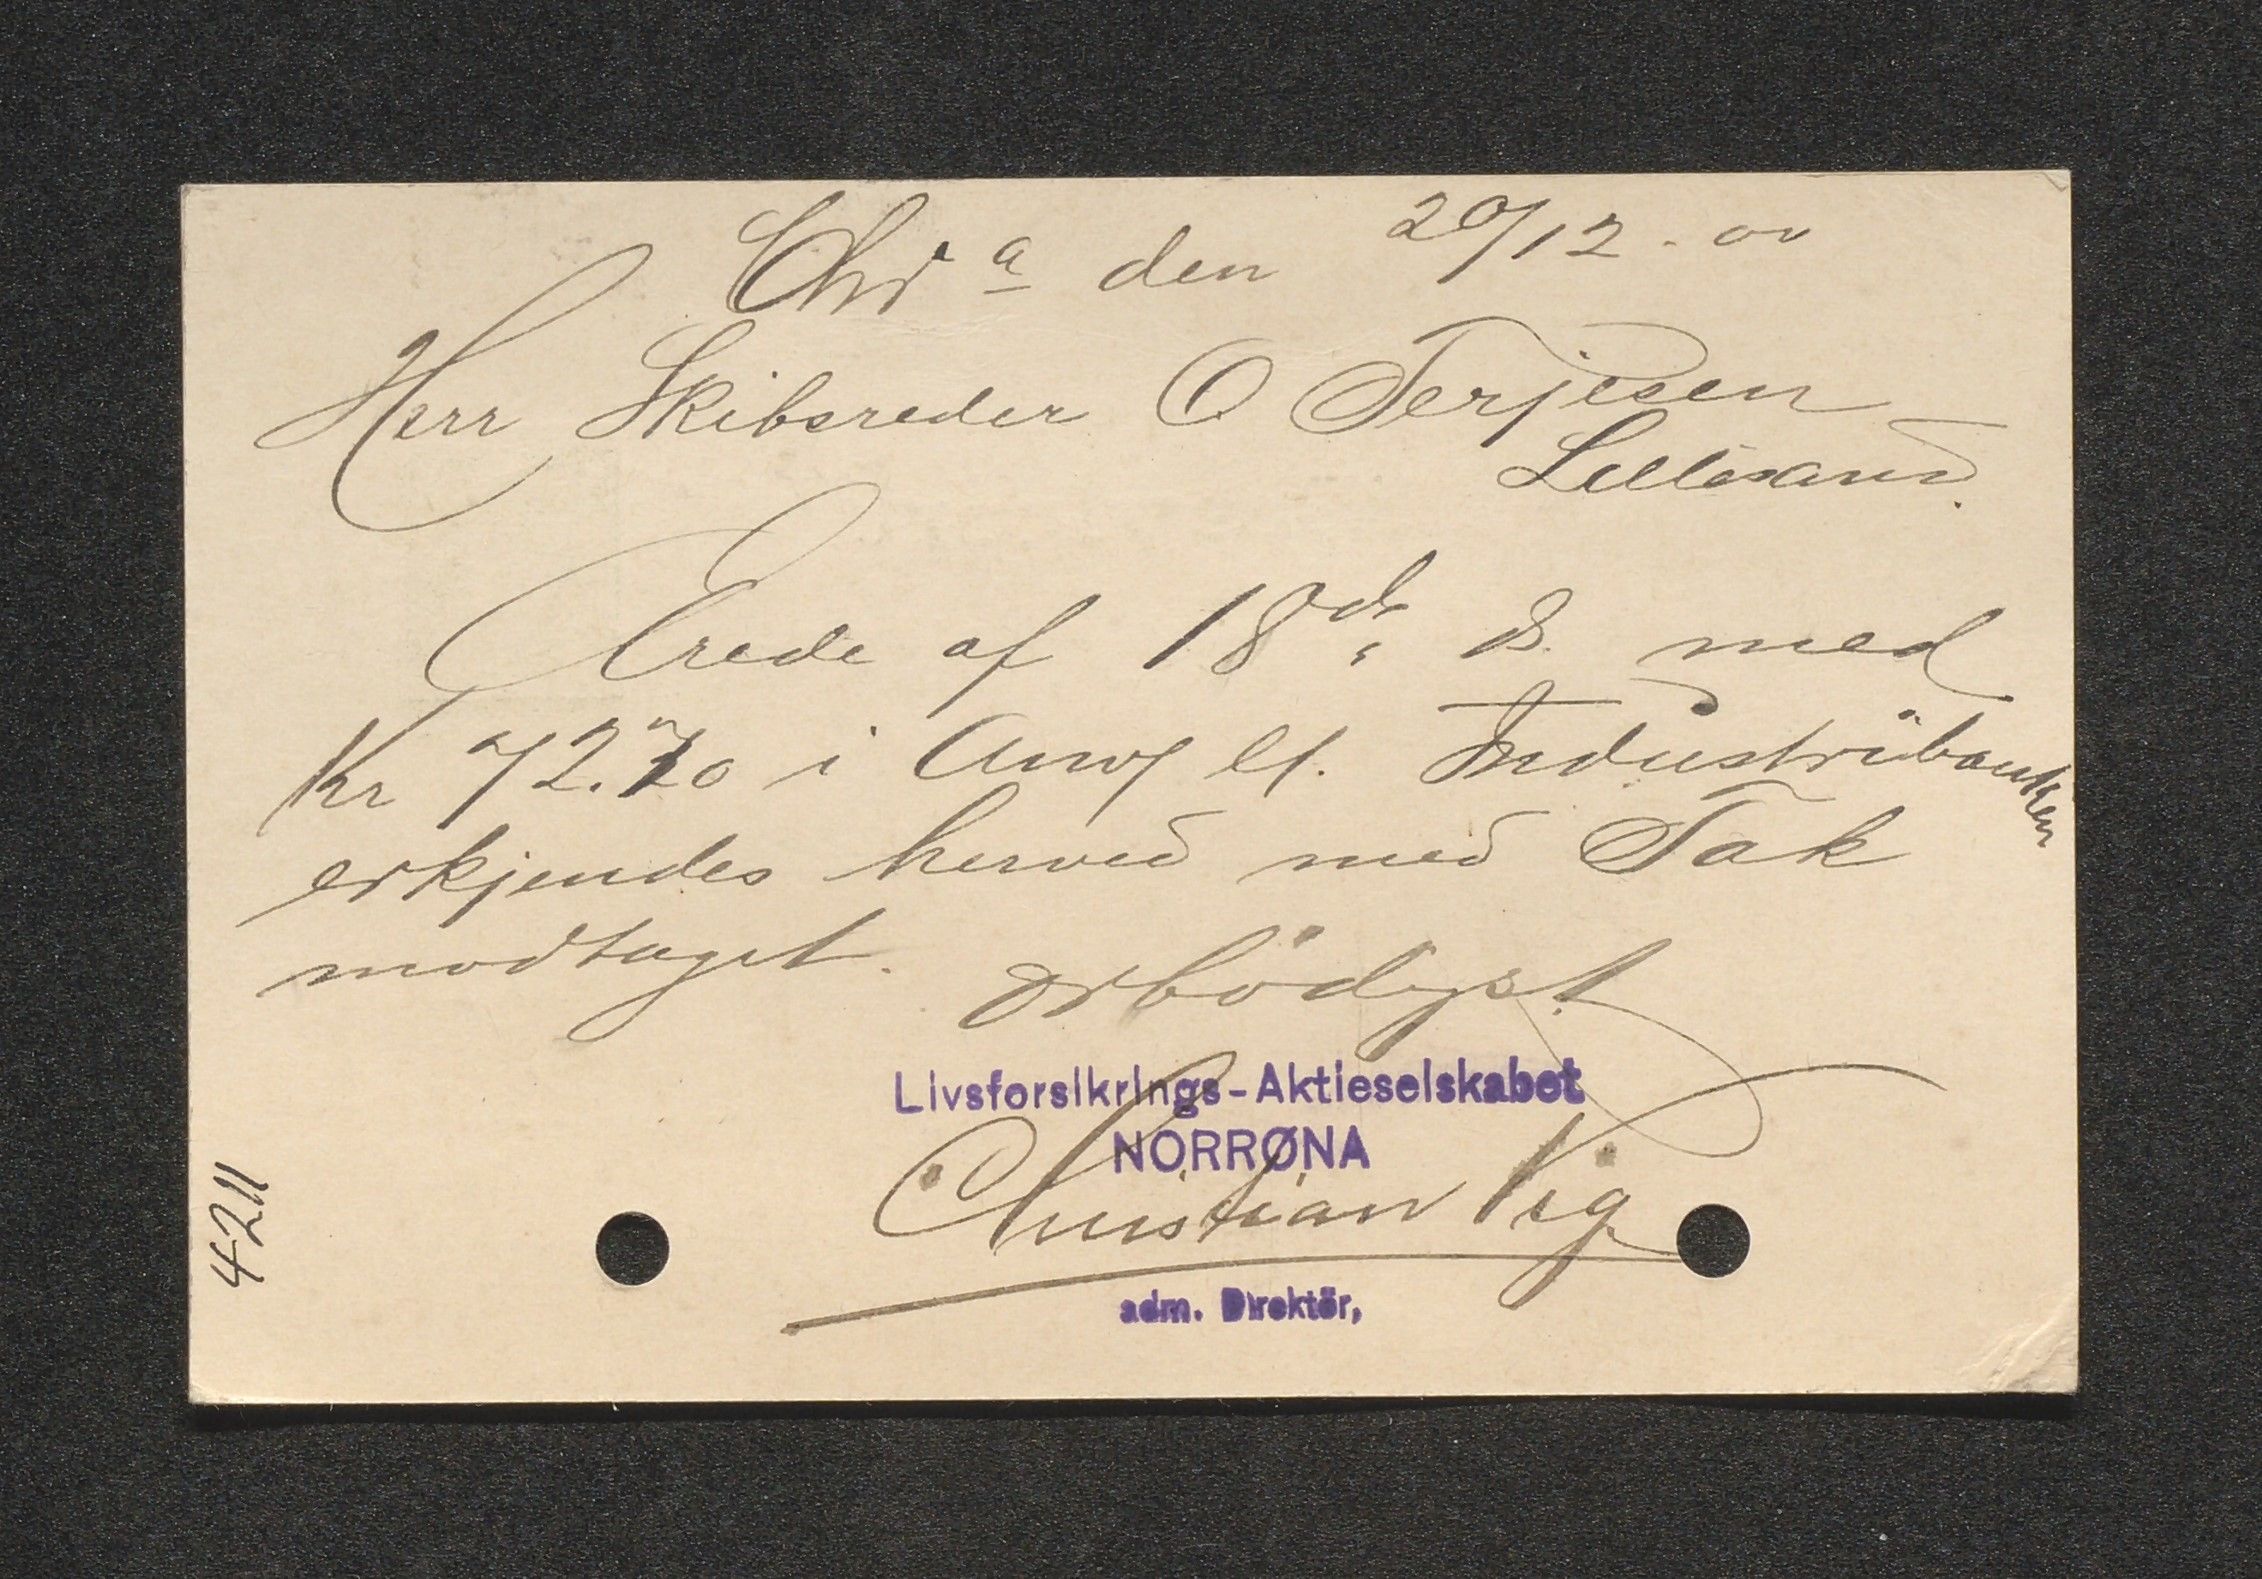 Chr a den 20/12. 00
Herr Skibsreder O Terjesen
Lillesand.
Ærede af 18de ds. med
Kr 72.70 i Anvg Industribanken
erkjendes herved med Tak
modtaget. Ærbödigst
Livsforsikrings-Aktieselskabet
NORRØNA
Christian Vig
adm. Direktör,
4211